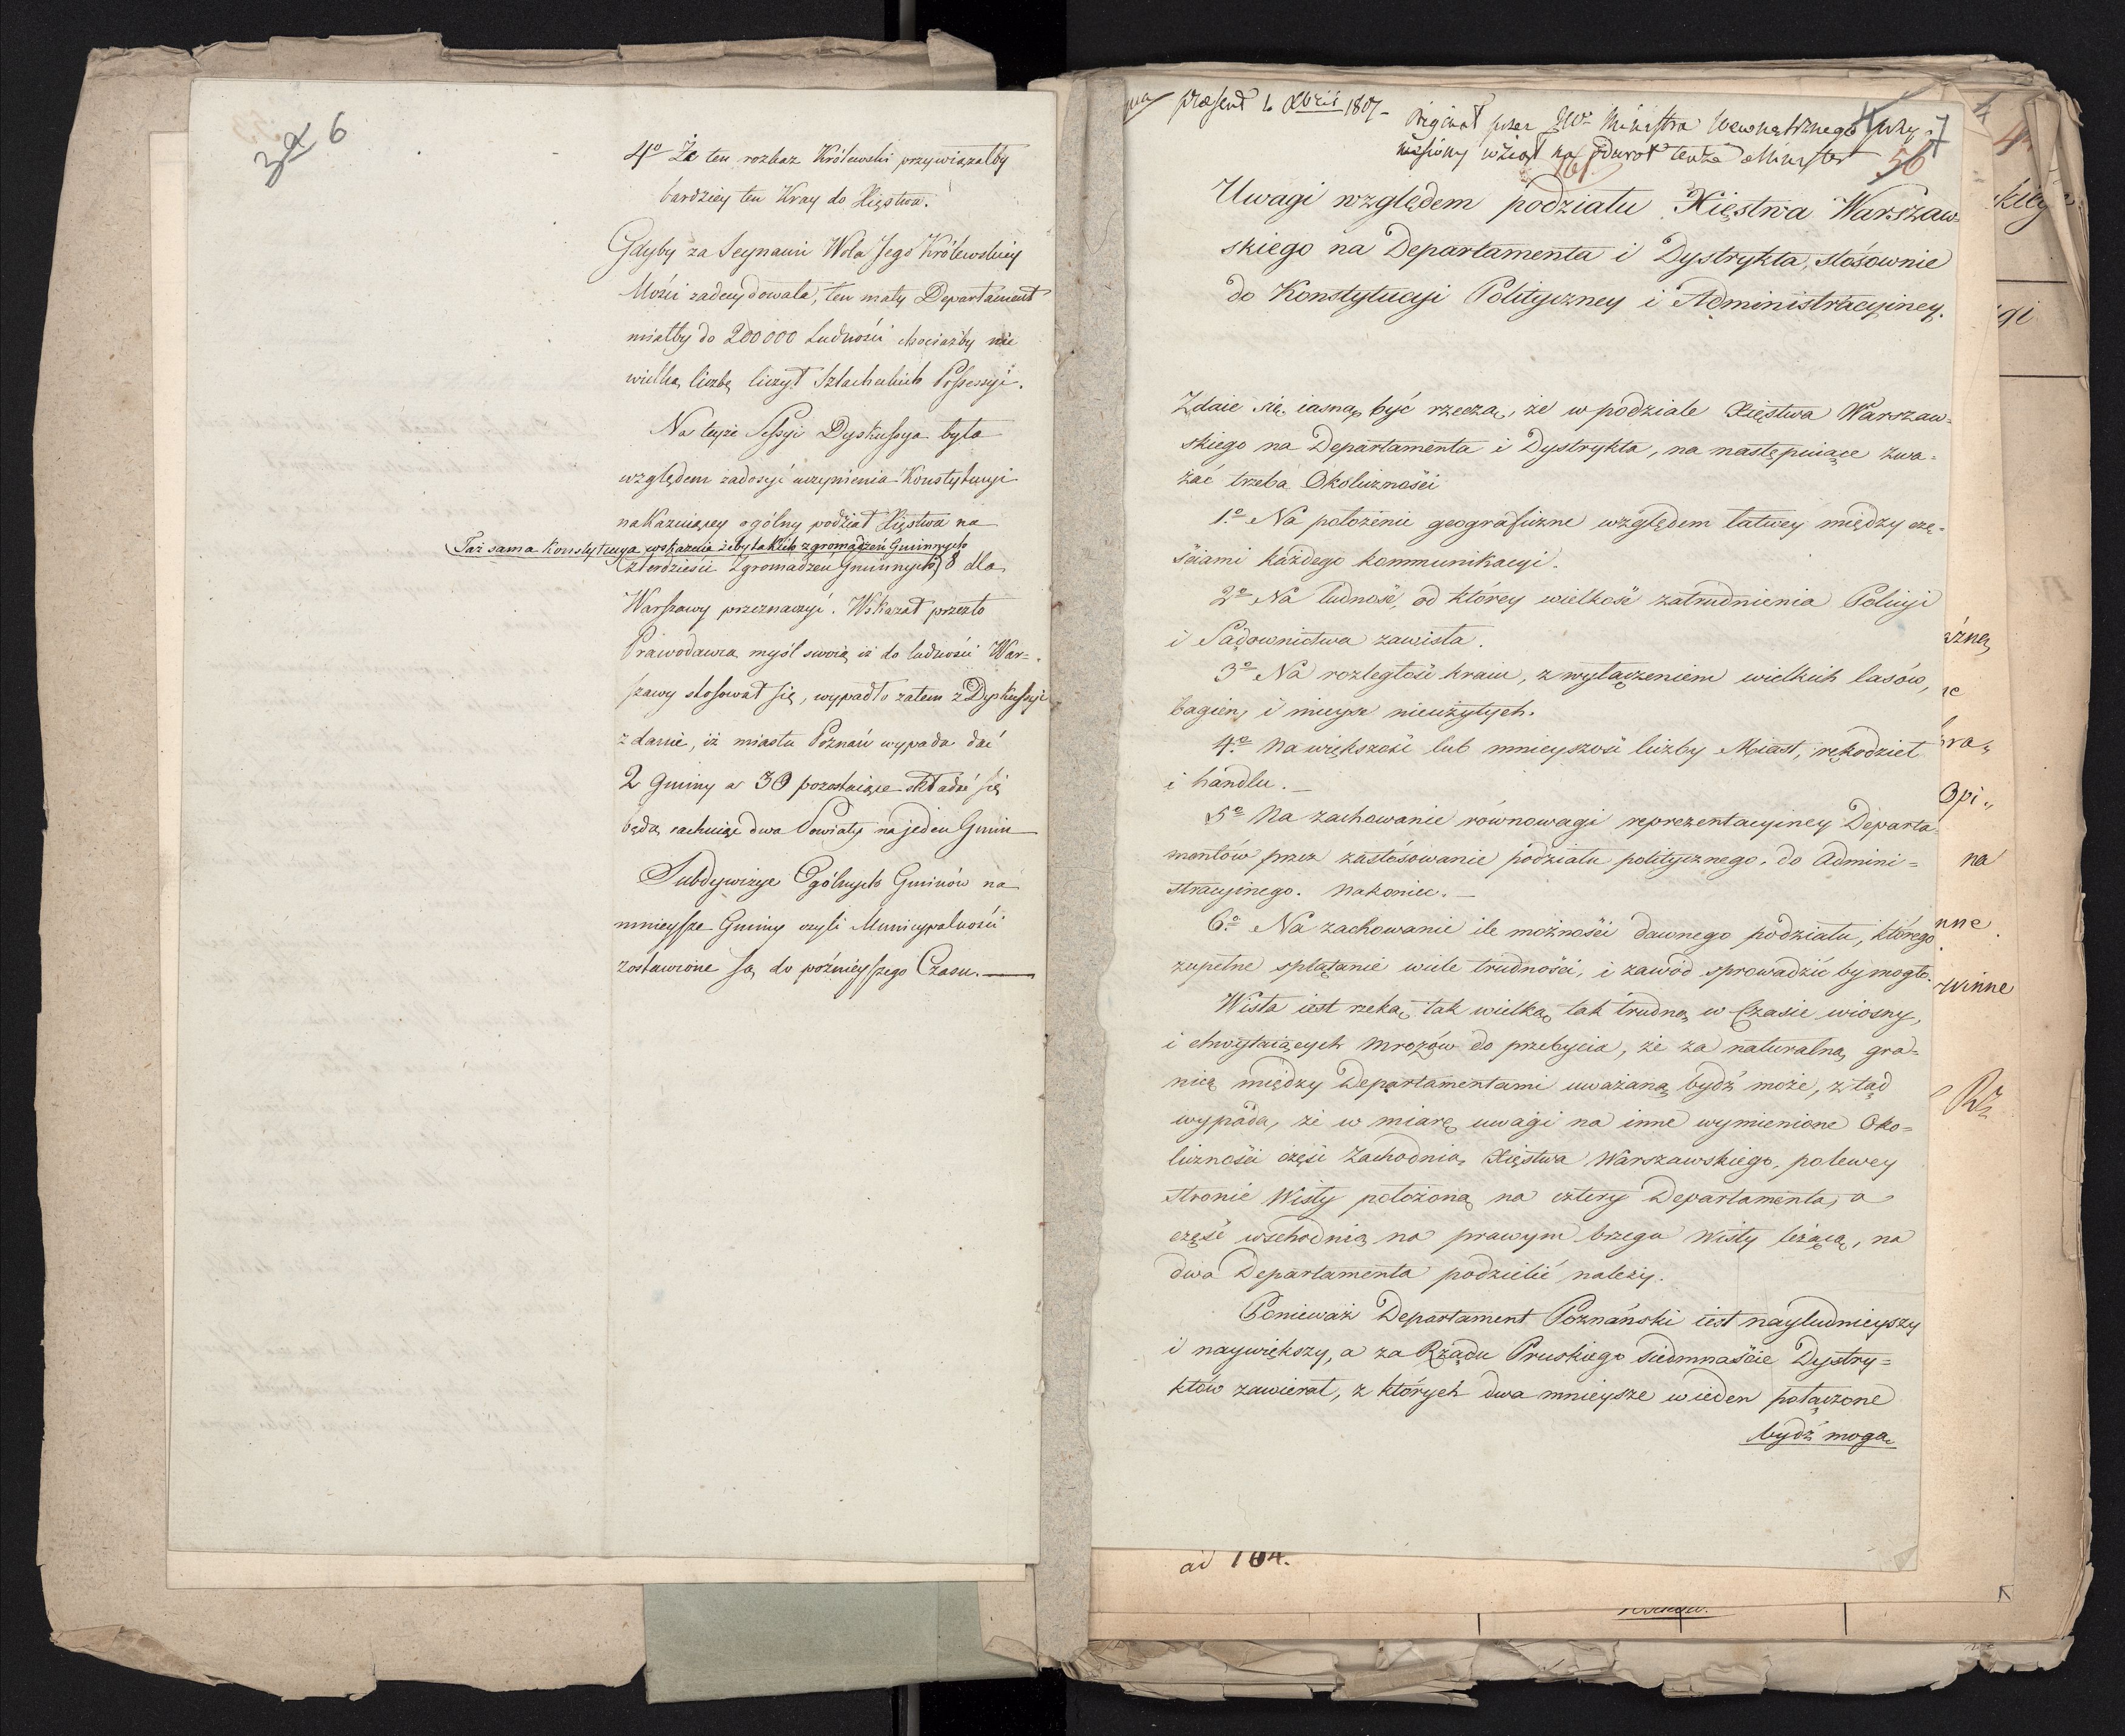 3 a 6
4º Że ten rozkaz Królewski przywiązałby
bardziey ten Kray do Xięstwa.
Gdyby za Seynami Wola Jego Królewskiey
Mości zadecydowała, ten mały Departament
miałby do 200000 Ludności chociażby nie
wielką liczbę liczył Szlacheckich Possessyi.
Na teyże Sessyi Dyskussya była
względem zadosyć uczynienia Konstytucyi
nakazuiącey ogólny podział Xięstwa na
Taż sama Konstytucya wskazuie żeby takich zgromadzeń Gminnych
czterdzieści Zgromadzeń Gminnych 8 dla
Warszawy przeznaczyć. Wskazał przeto
Prawodawca myśl swoią iż do ludności War=
szawy stosował się, wypadło zatem z Dyskussyi
zdanie, iż miastu Poznań wypada dać
2 Gminy a 30 pozostaiące składać się
będą rachuiąc dwa Powiaty na jeden Gmin
Subdywizye Ogólnych Gminów na
mnieysze Gminy czyli Municypalności
zostawione są do poźnieyszego Czasu.
praesent 1807
Originał przez JW. Ministra Wewnętrznego przy=
niesiony wziął na powrót tenże Minister
7
56
161.
Uwagi względem podziału Xięstwa Warszaw=
skiego na Departamenta i Dystrykta, stósownie
do Konstytucyi Polityczney i Administracyiney.
Zdaie się iasną być rzeczą, że w podziale Xięstwa Warszaw=
skiego na Departamenta i Dystrykta, na następuiące zwa=
żać trzeba Okoliczności
1.º Na położenie geograficzne względem łatwey między czę=
ściami każdego kommunikacyi.
2º Na ludność, od którey wielkość zatrudnienia Policyi
i Sądownictwa zawisła.
3º Na rozległość kraiu, z wyłączeniem wielkich lasów,
bagien, i mieysc nieużytych.
4.º Na większość lub mnieyszość liczby Miast, rękodzieł
i handlu.
5º Na zachowanie równowagi reprezentacyiney Departa=
mentów przez zastósowanie podziału politycznego, do Admini=
stracyinego. Nakoniec.
6.º Na zachowanie ile możności dawnego podziału, którego
zupełne splątanie wiele trudności, i zawód sprowadzić by mogło.
Wisła iest rzeką, tak wielką, tak trudną w Czasie wiosny,
i chwytaiących mrozów do przebycia, że za naturalną gra=
nicę między Departamentami uważaną bydź może, ztąd
wypada, że w miarę uwagi na inne wymienione Oko=
liczności część Zachodnią Xięstwa Warszawskiego, po lewey
stronie Wisły położoną na cztery Departamenta, a
część wschodnią na prawym brzegu Wisły leżącą, na
dwa Departamenta podzielić należy.
Ponieważ Departament Poznański iest nayludnieyszy
i naywiększy, a za Rządu Pruskiego siedmnaście Dystry=
któw zawierał, z których dwa mnieysze w ieden połączone
bydź mogą
ad 164.